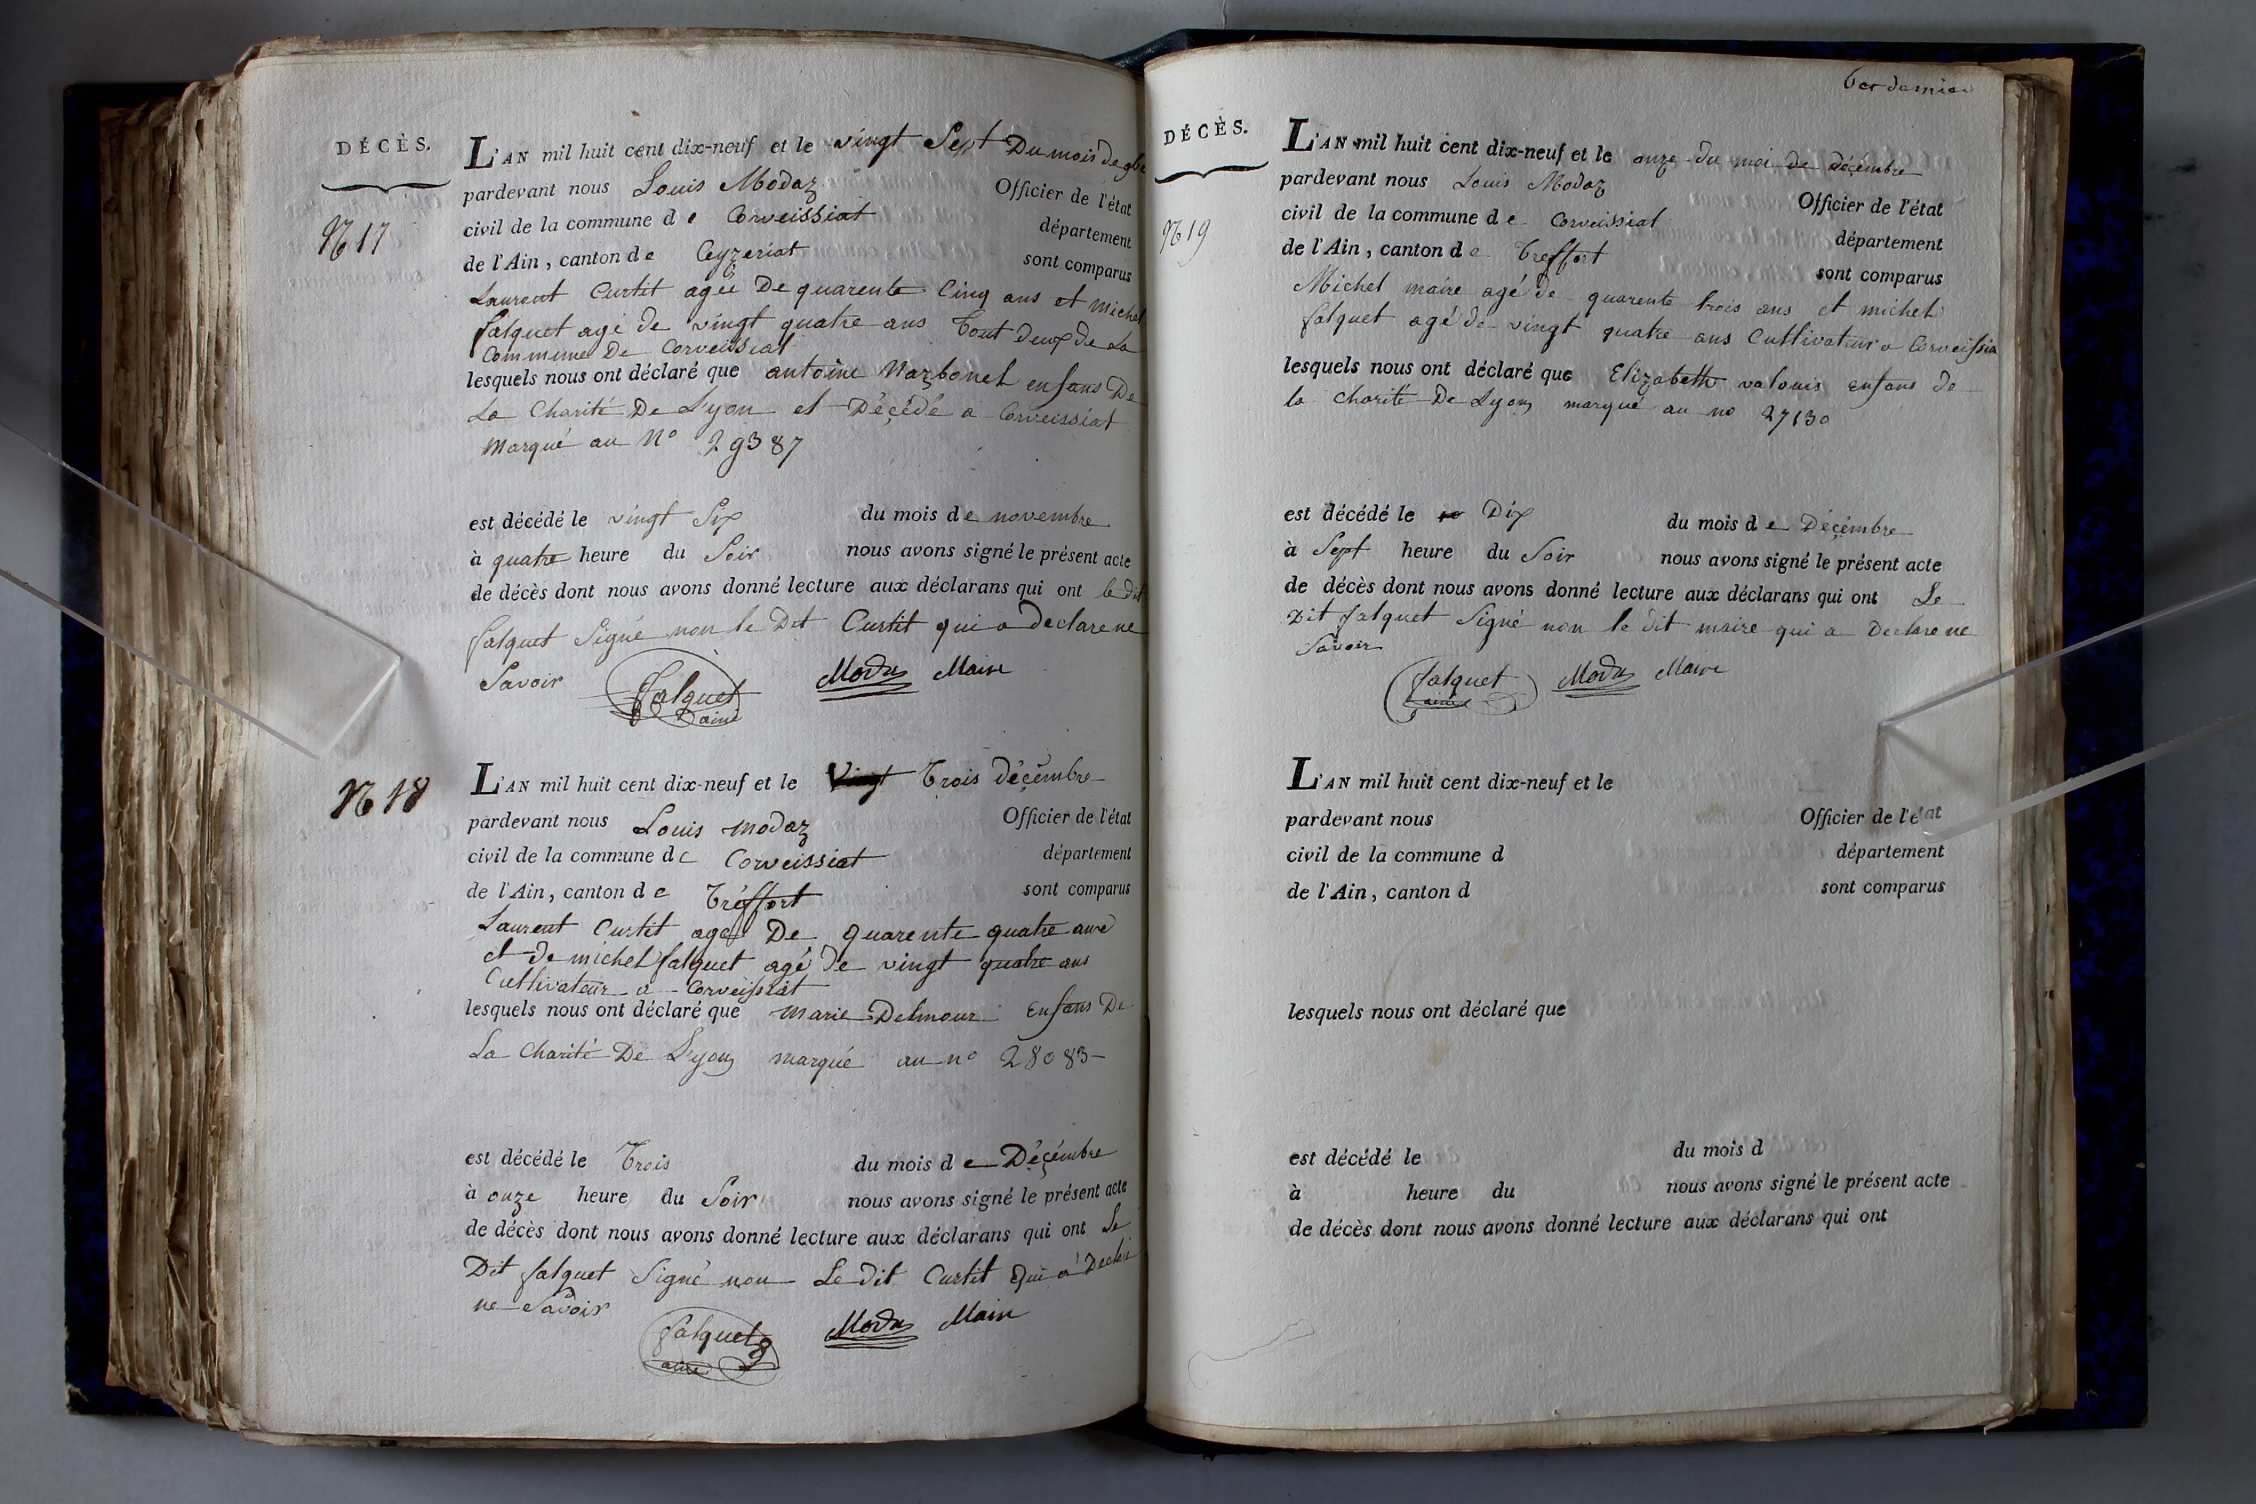 DÉCÈS.
N 17
L'AN mil huit cent dix-neuf et le vingt Sept Du mois de 9bre
pardevant nous Louis Modaz Officier de l'état
civil de la commune de Corveissiat département
de l'Ain, canton de Ceyzeriat sont comparus
Laurent Curtit agée De quarente Cinq ans et michel
falquet agé de vingt quatre ans Tout deux de La
Commune De Corveissiat
lesquels nous ont déclaré que antoine Narbonet enfans De
La Charité De Lyon et Décédé a Corveissiat
Marqué au N° 29387
est décédé le vingt Six du mois de novembre
à quatre heure du Soir nous avons signé le présent acte
de décès dont nous avons donné lecture aux déclarans qui ont le dit
falquet Signé non le Dit Curtit qui a declare ne
Savoir
falquet ainé Modas Maire
N 18
L'AN mil huit cent dix-neuf et le vingt Trois décembre
pardevant nous Louis modaz Officier de l'état
civil de la commune de Corveissiat département
de l'Ain, canton de Tréffort sont comparus
Laurent Curtit agé De quarente quatre ans
et de michel falquet agé de vingt quatre ans
Cultivateur a Corveissiat
lesquels nous ont déclaré que Marie Delmour Enfans De
La Charité De Lyon marqué au n° 28083
est décédé le Trois du mois de Décémbre
à onze heure du Soir nous avons signé le présent acte
de décès dont nous avons donné lecture aux déclarans qui ont Le
Dit falquet Signé non Le dit Curtit Qui a
ne Savoir
falquet ainé Modas Maire
6er dernier
DÉCÈS.
N 19
L'AN mil huit cent dix-neuf et le onze du moi de décembre
pardevant nous Louis Modaz Officier de l'état
civil de la commune de Corveissiat département
de l'Ain, canton de Treffort sont comparus
Michel maire agé de quarente trois ans et michel
falquet agé de vingt quatre ans Cultivateur a Corveissia
lesquels nous ont déclaré que Elizabeth valouis enfans de
la charité De Lyon marqué au no 27130
est décédé le Dix du mois de Décémbre
à Sept heure du Soir nous avons signé le présent acte
de décès dont nous avons donné lecture aux déclarans qui ont Le
Dit falquet Signé non le dit maire qui a Declare ne
Savoir
falquet ainé Modas Maire
L'AN mil huit cent dix-neuf et le
pardevant nous Officier de l'état
civil de la commune d département
de l'Ain, canton d sont comparus
lesquels nous ont déclaré que
est décédé le du mois d
à heure du nous avons signé le présent acte
de décès dont nous avons donné lecture aux déclarans qui ont